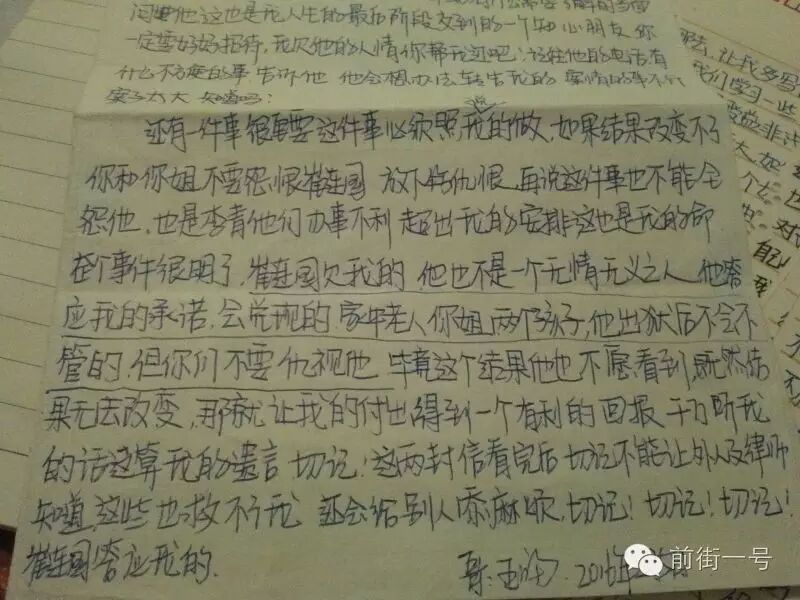 闭嘴他这也是我人生的最后阶段交到的一个知心朋友你
一定要好好招待,我欠他的人情你帮我还吧!记住他的电话有
什么不方便的事告诉他 他会想办法转告我的 案情的事不
知道吗:
还有一件事很重要这件事必须照我的做,如果结果改变不了
你和你姐不要怨恨崔连国 放下仇恨 再说这件事也不能全
怨他,也是李青他们办事不利 超出我的安排这也是我的命
整个事件很明了,崔连国欠我的,他也不是一个无情无义之人,他答
应我的承诺,会兑现的.家中老人你姐,两个孩子,他出狱后不会不
管的.但你们不要仇视他 毕竟这个结果他也不愿看到,既然结
果无法改变,那就让我的付出得到一个有利的回报 千万听我
的话这算我的遗言 切记!这两封信看完后 切记不能让外人及律师
知道,这些也救不了我 还会给别人添麻烦,切记!切记!切记!
崔连国答应我的.
哥:玉
让我
我们学习一些
非法
自己
前街一号